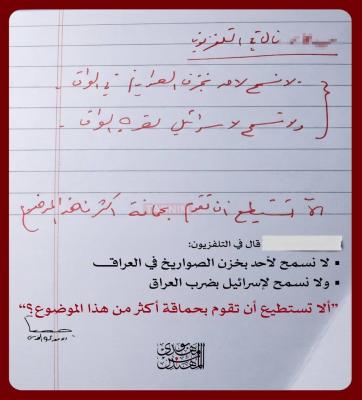 قال في التلفزيون
- لا نسمح لأحد بخزن الصواريخ في العراق
- ولا نسمح لاسرائيل بضرب العراق
ألا تستطيع ان تقوم بحماقة أكثر من هذا الموضوع
قال في التلفزيون:
▪ لا نسمح لأحد بخزن الصواريخ في العراق
▪ ولا نسمح لإسرائيل بضرب العراق
"ألا تستطيع أن تقوم بحماقة أكثر من هذا الموضوع؟"